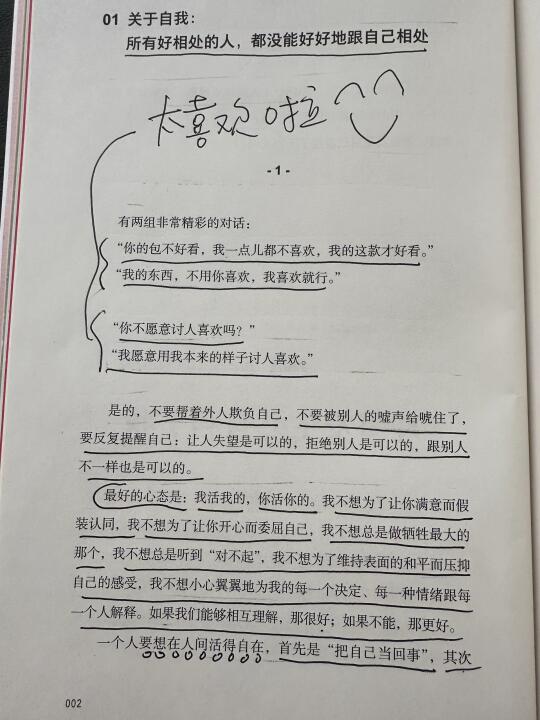 01 关于自我：
所有好相处的人，都没能好好地跟自己相处
太喜欢啦
- 1 -
有两组非常精彩的对话：
“你的包不好看，我一点儿都不喜欢，我的这款才好看。”
“我的东西，不用你喜欢，我喜欢就行。”
“你不愿意讨人喜欢吗？”
“我愿意用我本来的样子讨人喜欢。”
是的，不要帮着外人欺负自己，不要被别人的嘘声给唬住了，
要反复提醒自己：让人失望是可以的，拒绝别人是可以的，跟别人
不一样也是可以的。
最好的心态是：我活我的，你活你的。我不想为了让你满意而假
装认同，我不想为了让你开心而委屈自己，我不想总是做牺牲最大的
那个，我不想总是听到“对不起”，我不想为了维持表面的和平而压抑
自己的感受，我不想小心翼翼地为我的每一个决定、每一种情绪跟每
一个人解释。如果我们能够相互理解，那很好；如果不能，那更好。
一个人要想在人间活得自在，首先是“把自己当回事”，其次
002